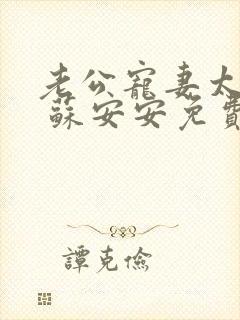 老公寵妻太
蘇安安免費
譚克儉